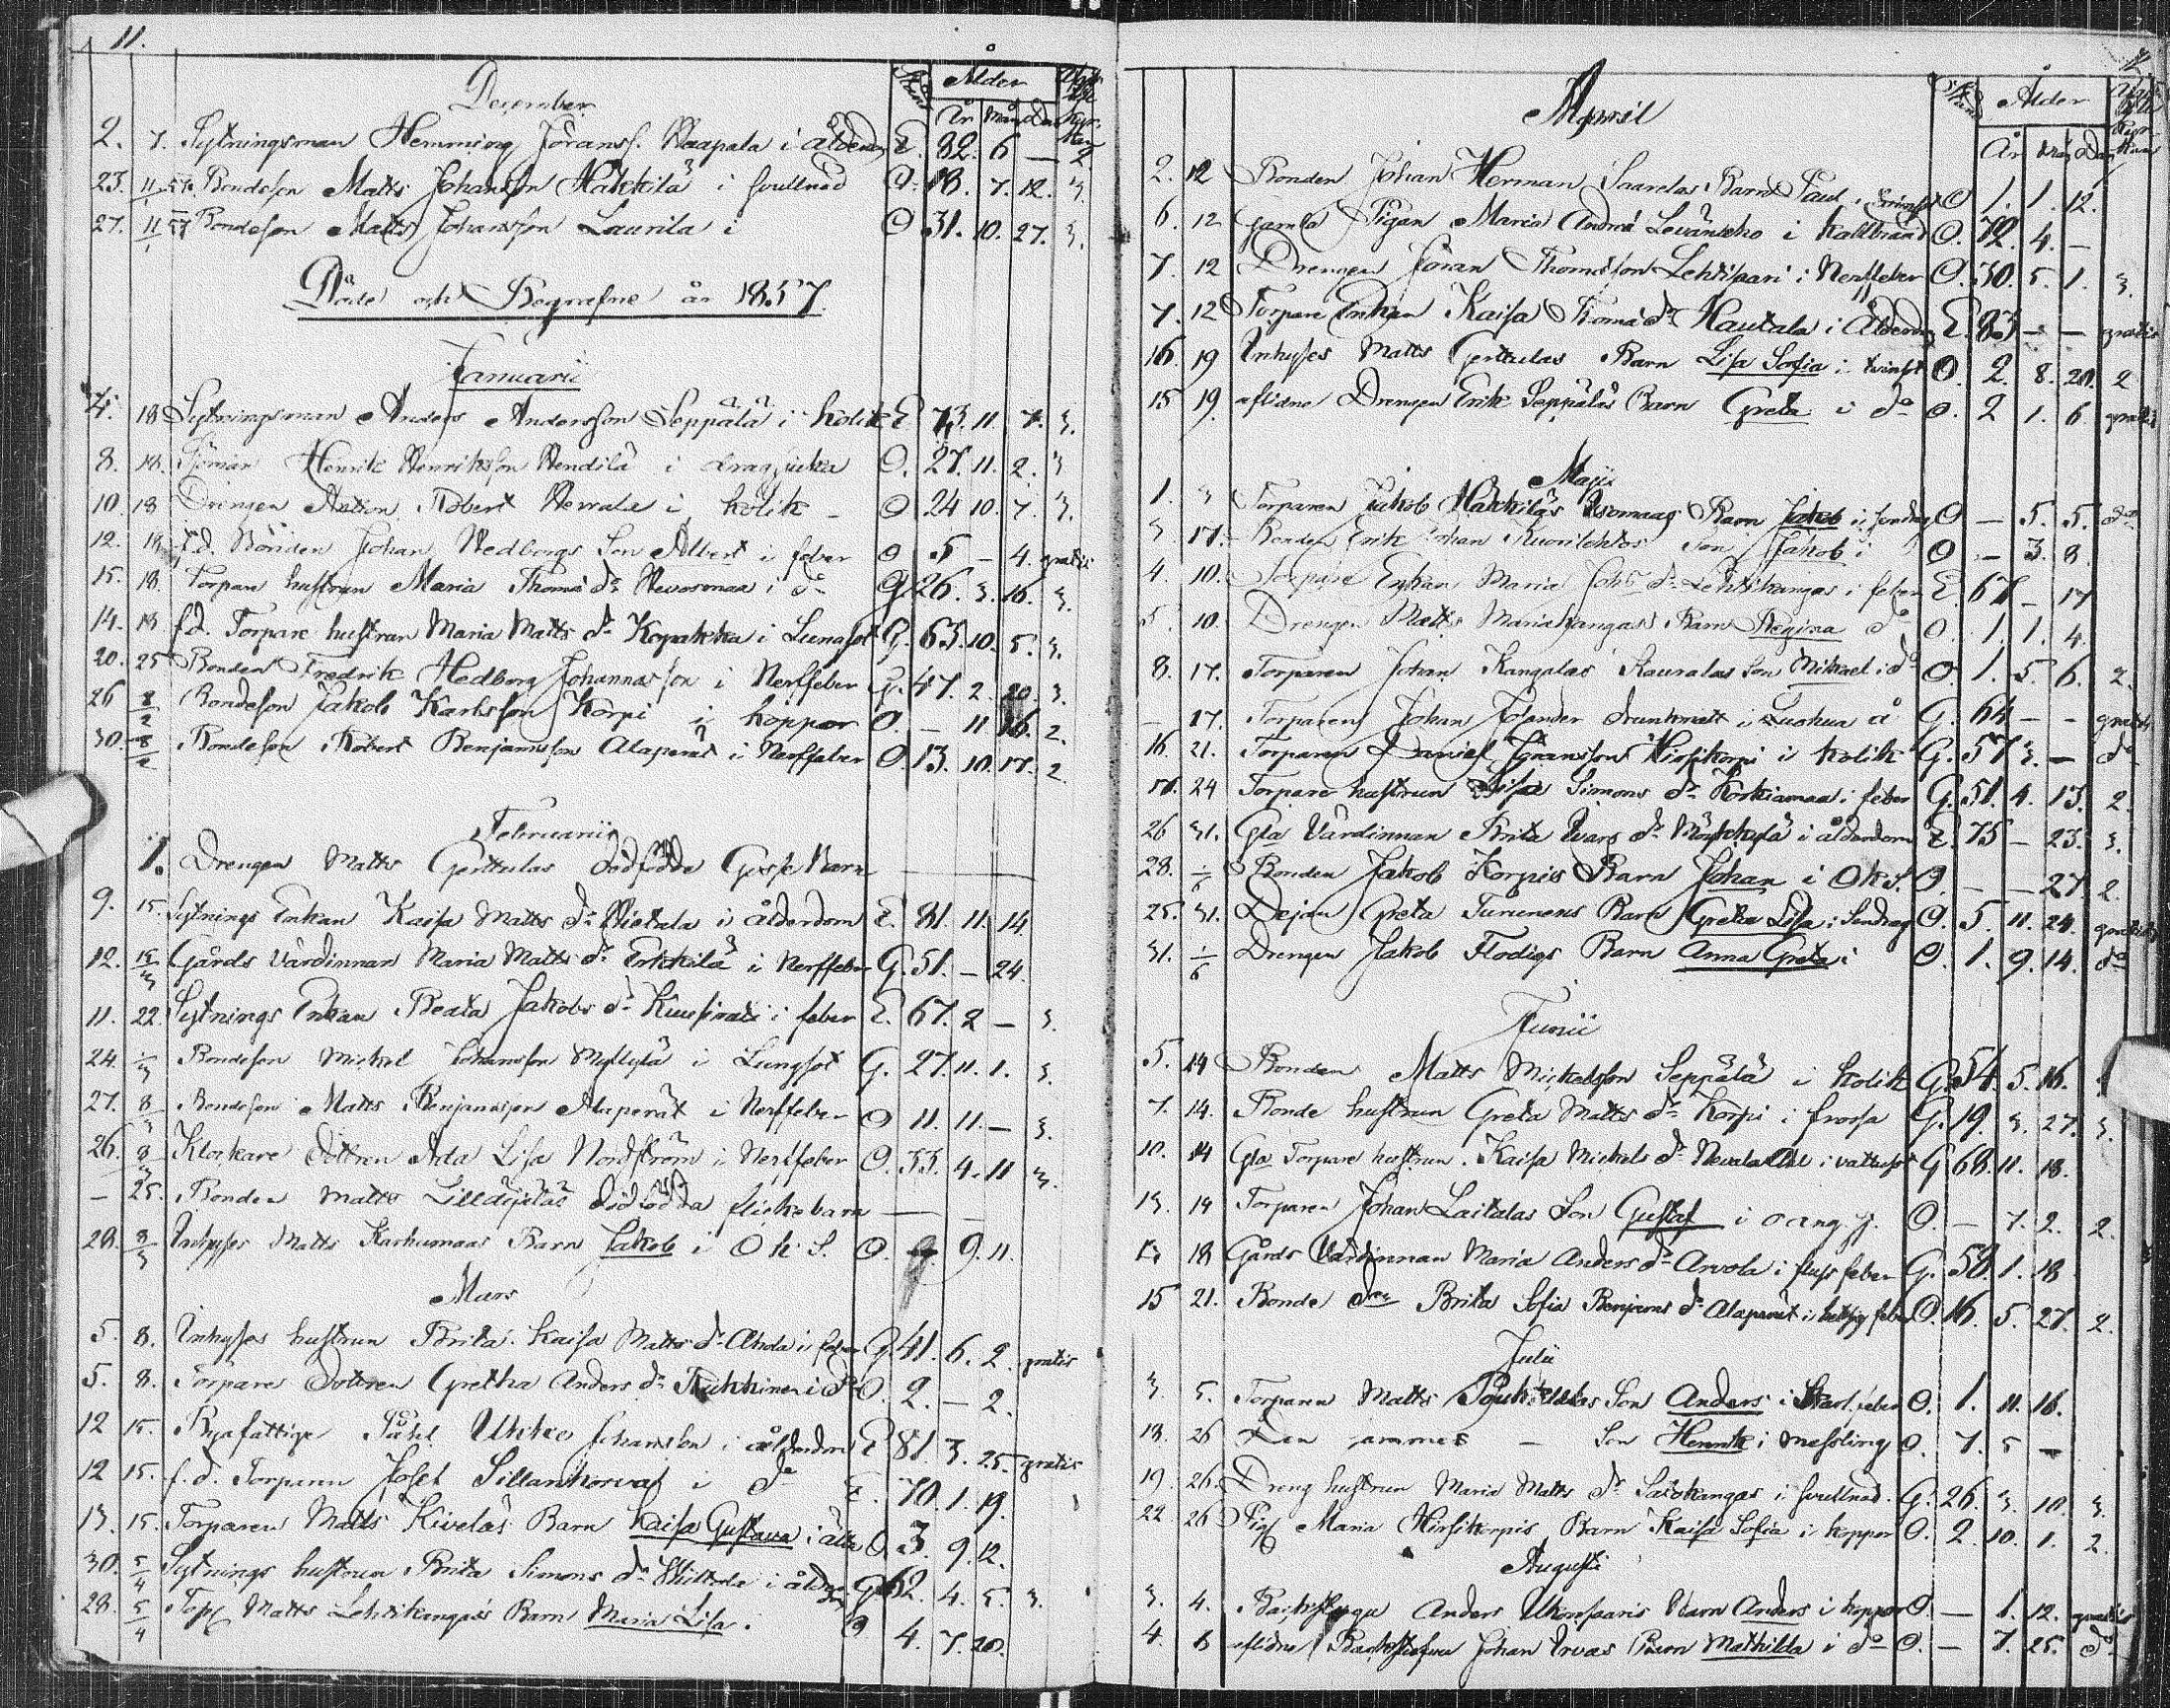 11.
Stånd Ålder
År Mån Dar
December
2. 7. Sytningsman Hemming Göransf. Haapala i ålderd. E. 82. 6 — 2
23. 11/1 57. Bondeson Matts Johansson Häkkilä i svullnad O. 18. 7. 12. 3.
27. 11/1 57 Bondeson Matts Johansson Laurila i O 31. 10. 27. 3.
Döde och Begrafne år 1857.
Januarii
4. 18 Sytningsman Anders Andersson Seppälä i kolik E 73. 11. 7. 3.
8. 18. Henrik Henriksson i O. 27. 11. 2. 3
10. 18 Drengen Anton Robert i kolik — O 24 10. 7. 3.
12. 18 f.d. Bonden Johan Hedbergs Son Albert i feber O 5 — 4. gratis
15. 18. Torpare hustrun Maria Thomæ dr i do G 26. 3. 16. 3.
14. 18 fd. Torpare hustrun Maria Matts dr Kopakka i Lungsot G. 63. 10. 5. 3.
20. 25 Bonden Fredrik Hedborg Johannesson i Nerffeber G. 47. 2. 20. 3.
26 8/2 Bondeson Jakob Karlsson Korpi i koppor O. — 11 16. 2.
30. 8/2 Bondeson Robert Benjamsson Alaperät i Nerffeber O. 13. 10. 17. 2.
Februarii
1. Drengen Matts Gerttulas dödfödda Gosse Barn —
9. 15. Sytnings Enkan Kaisa Matts dr Hietala i ålderdom E. 81. 11. 14.
12. 15/3 Gårds Värdinnan Maria Matts dr Erkkilä i Nerffeber G. 51. — 24.
11. 22. Sytnings Enkan Beata Jakobs dr i feber E. 67. 2 — 3.
24. 1/3 Bondeson Mickel Johansson Myllylä i Lungsot G. 27. 11. 1. 3.
27. 8/3 Bondeson Matts Benjamsson Alaperät i Nerffeber O 11. 11. — 3.
26. 8/3 Klockare dottren Ada Lisa Nordström i Nerffeber O. 33. 4. 11 3.
— 25. Bonden Matts Lilläijäläs dödfödda flickebarn —
28. 8/3 Inhyses Matts Karhumaas Barn Jakob i O k. S. O. 9. 11.
Mars
5. 8. Inhyses hustrun Brita Kaisa Matts dr Ahola i feber G. 41. 6. 2. gratis
5. 8. Torpares Dottren Gretha Anders dr i do O. 2. — 2.
12 15. Byafattige Påhl Ukko Johansson i ålderdom E 81. 3. 25. gratis
12 15. f.d. Torparen Josef Sillankorva i do E. 70. 1. 19.
13. 15. Torparen Matts Kiveläs Barn Kaisa Gustava i O. 3. 9. 12.
30. 5/4 Sytnings hustrun Brita Simons dr i ålderdom G 62. 4. 5. 3.
28. 5/4 Torp. Matts Lehtikangas's Barn Maria Lisa. O 4. 7. 20.
Stånd Ålder
År Mån Dar
April
2. 12 Bonden Johan Herman Saarelas Barn Paul i O 1. 1. 12.
6. 12 Gamla Pigan Maria Andræ i Kallbrand O. 72. 4. —
7. 12 Drengen Göran Thomasson Lehtisaari i Nerffeber O. 30. 5. 1. 3.
7. 12 Torpare Enkan Kaisa Thomæ dr Hautala i Ålderdom E. 83 — — gratis
16. 19 Inhyses Matts Gerttulas Barn Lisa Sofia i tvinsot O. 2. 8. 20. 2
15 19. aflidne Drengen Erik Seppäläs Barn Greta i do O. 2 1. 6. gratis
Maji
1. 3 Torparen Jakob Häkkiläs Barn Jakob i O — 5. 5. do
3. 17. Bonden Erik Johan Son Jakob i O — 3. 8.
4. 10. Torpare Enkan Maria dr Lehtikangas i feber E. 67 — 17
5. 10. Drengen Matts Mariakangas Barn Regina do O. 1. 1. 4.
8. 17. Torparen Johan Kangalas Son Mikael i do O. 1. 5. 6. 2.
— 17. Torparen Johan Jolander drunknatt i Luohua å G. 64 — — gratis
16. 21. Torparen Daniel Göransson Hirsikorpi i kolik G. 57 3. — do
24 Torpare hustrun Lisa Simons dr i feber G. 51. 4. 13. 2.
26 31. Gla Värdinnan Brita dr i ålderdom E. 75 — 23. 3.
28. 1/6 Bonden Jakob Korpis Barn Johan i Ok S. O. — — 27. 2.
25. 31. Dejan Greta Turunens Barn Greta Lisa i O. 5. 11. 24. gratis
31. 1/6 Drengen Jakob Flodigs Barn Anna Greta i O. 1. 9. 14. do
Junii
5. 14 Bonden Matts Mickelsson Seppälä i kolik G. 54. 5. 16.
7. 14. Bonde hustrun Greta Matts dr Korpi i frossa G. 19. 3. 27. 3.
10. 14 Gla Torpare hustrun Kaisa Mickels dr i vattusot G 68. 11. 18.
13. 14 Torparen Johan Laitalas Son Gustaf i O. — 7. 2. 2.
13 18 Gårds Värdinnan Maria Anders dr Arvola i fluss feber G. 50. 1. 18
15 21. Bonde dren Brita Sofia Benjams dr Alaperät i hettsig feber O. 16. 5. 27. 2.
Julii
3. 5. Torparen Matts Son Anders i Skarl. feber O. 1. 11. 16.
18. 26 Den sammes — Son Henrik i messling O. 7. 5 —
19. 26. Dreng hustrun Maria Matts dr i svullnad. G. 26. 3. 10. 3.
22 26 Pig. Maria Hirsikorpis Barn Kaisa Sofia i koppor O. 2. 10. 1. 2.
Augusti
3. 4. Anders Barn Anders i koppor O. — 1. 12. gratis
4. 6 aflidne Johan Barn Mathilda i do O. — 7. 25. do